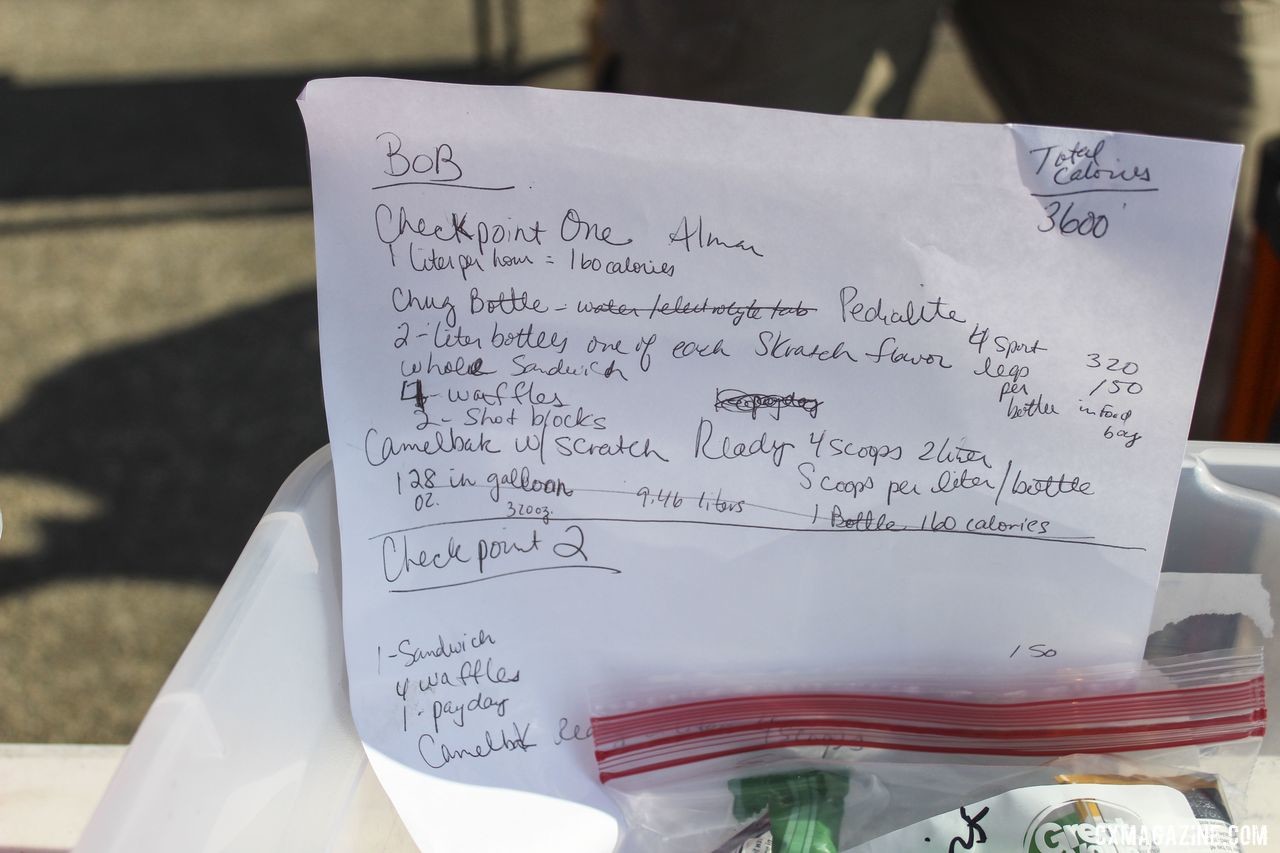 BOB
Total
Calories
3600
Checkpoint One Alma
1 liter per hour = 160 calories
Chug Bottle - water/electrolyte tab Pedialite
2 - liter bottles one of each Skratch flavor 4 Sport
legs 320
whole Sandwich
per 150
4 - waffles
bottle in food
bag
2 - Shot blocks
Camelbak w/ scratch Ready 4 scoops 2 liter
128 in galloon
oz. 320oz. 9.46 liters
Scoops per liter/bottle
1 Bottle 160 calories
Checkpoint 2
1 - Sandwich
150
4 waffles
1 - payday
Camelbak
4 scoops
Green
CXMAGAZINE.COM